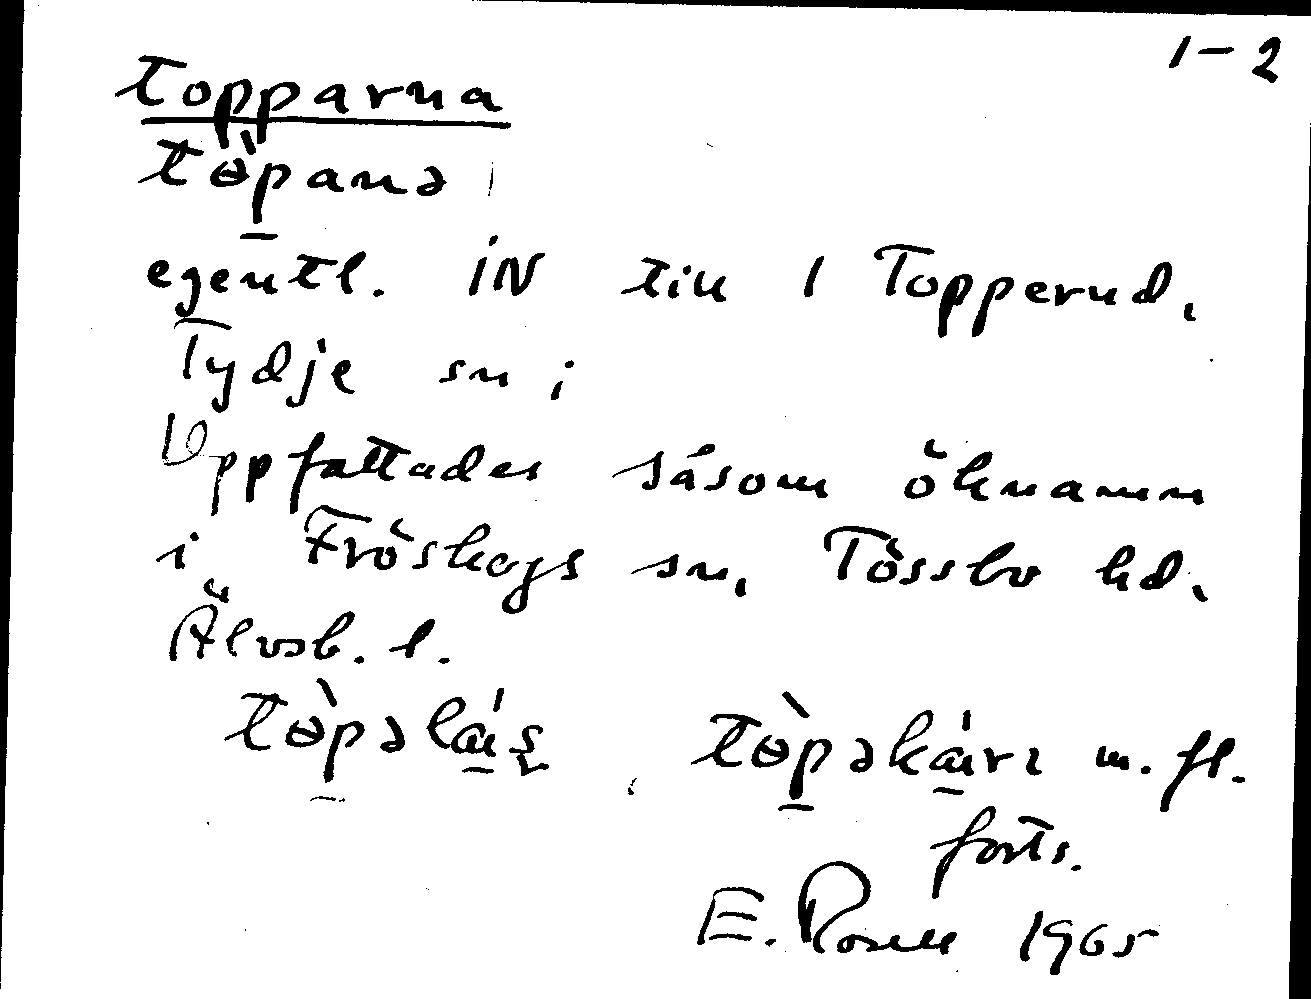 1-2
Topparna
tɵ̀panə
egentl. iN till 1 Topperud,
Tydje sn;
Uppfattades såsom öknamn
i Fröskogs sn, Tössbo hd,
Älvsb. l.
m. fl.
forts.
E. Rosell 1965